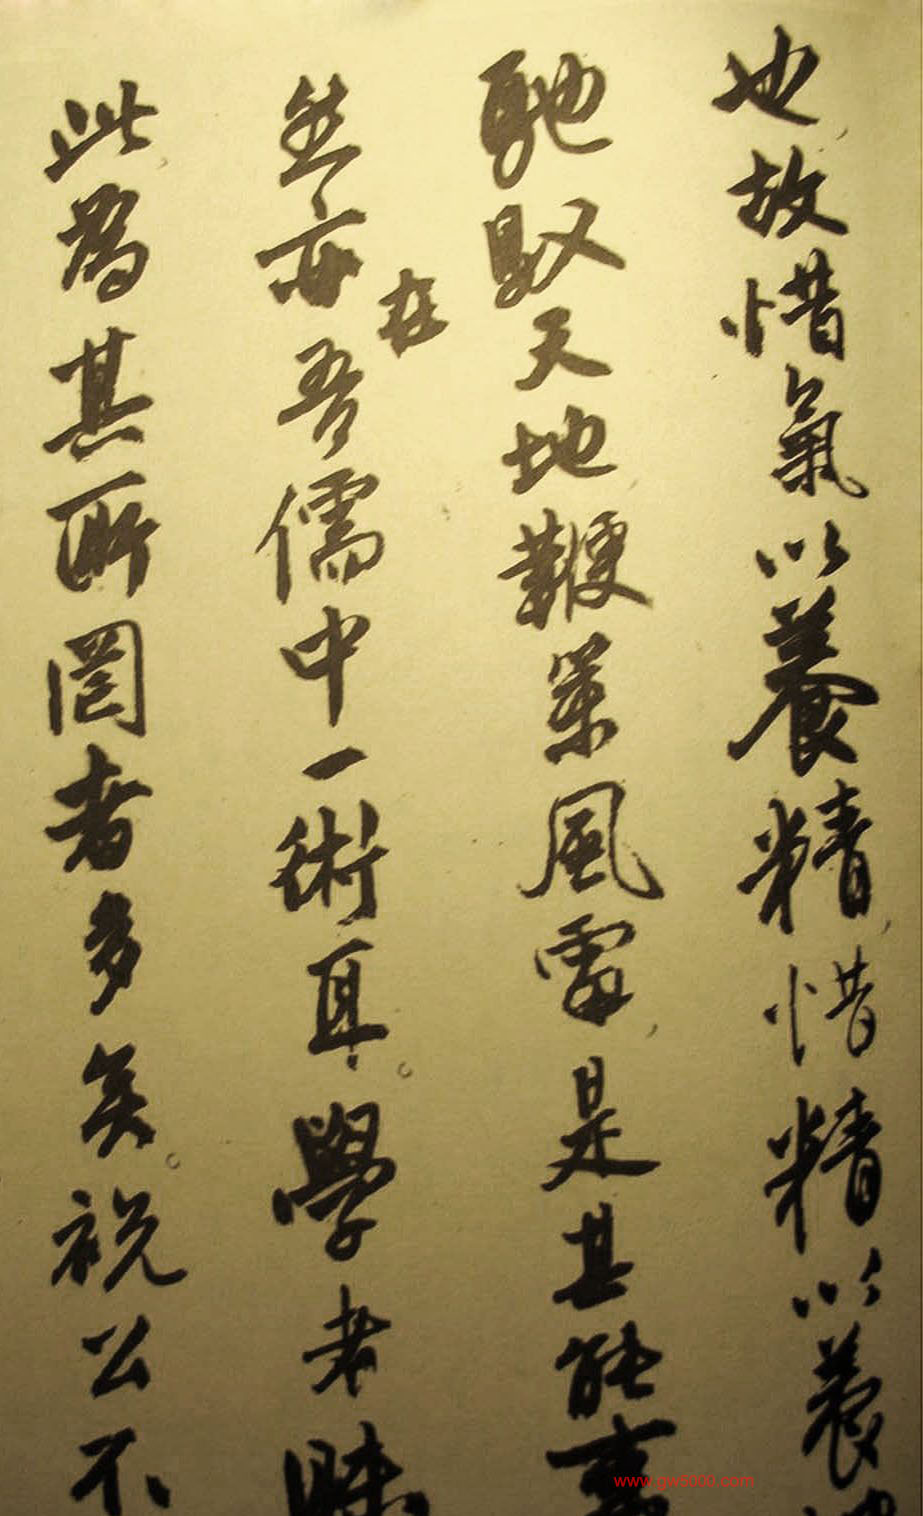 也故惜氣以養精惜精以養
馳馭天地鞭策風雷是其能事
然亦在吾儒中一術耳學者昧
此為其所罔者多矣祝公不
www.gw5000.com